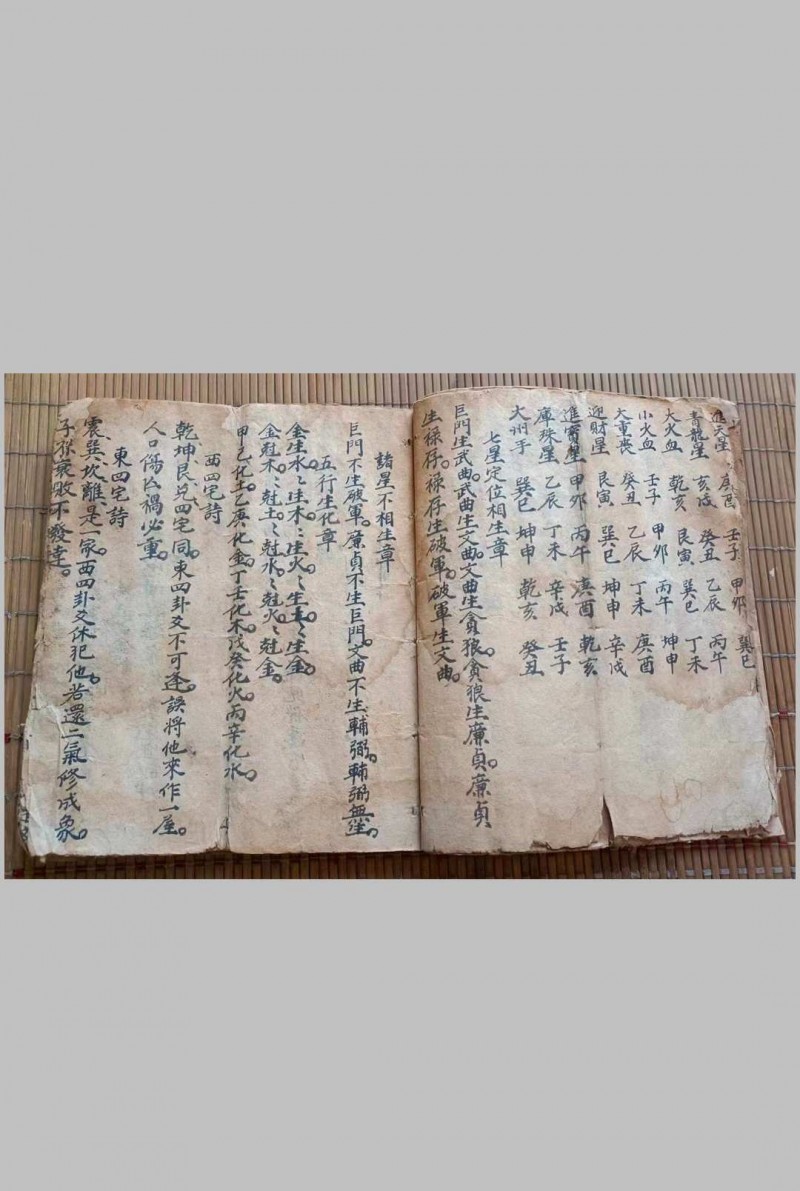 進天星 庚酉 壬子 甲卯 巽巳
青龍星 亥戌 癸丑 乙辰 丙午
大火血 乾亥 艮寅 巽巳 丁未
小火血 壬子 甲卯 丙午 坤申
大重喪 癸丑 乙辰 丁未 庚酉
迎財星 艮寅 巽巳 坤申 辛戌
進寳星 甲卯 丙午 庚酉 乾亥
庫珠星 乙辰 丁未 辛戌 壬子
大州手 巽巳 坤申 乾亥 癸丑
七星定位相生章
巨門生武曲。武曲生文曲。文曲生貪狼。貪狼生廉貞。廉貞
生禄存。禄存生破軍。破軍生文曲。
諸星不相生章
巨門不生破軍。廉貞不生巨門。文曲不生輔弼。輔弼無生。
五行生化章
金生水。〻生木。〻生火。〻生土。〻生金。
金尅木。〻尅土。〻尅水。〻尅火。〻尅金。
甲己化土。乙庚化金。丁壬化木。戊癸化火。丙辛化水。
西四宅詩
乾坤艮兌四宅同。東四卦爻不可逢。誤將他來作一屋。
人口傷亡禍必重。
東四宅詩
震巽坎離是一家。西四卦爻休犯他。若還二氣修成象。
子孫衰敗不發達。